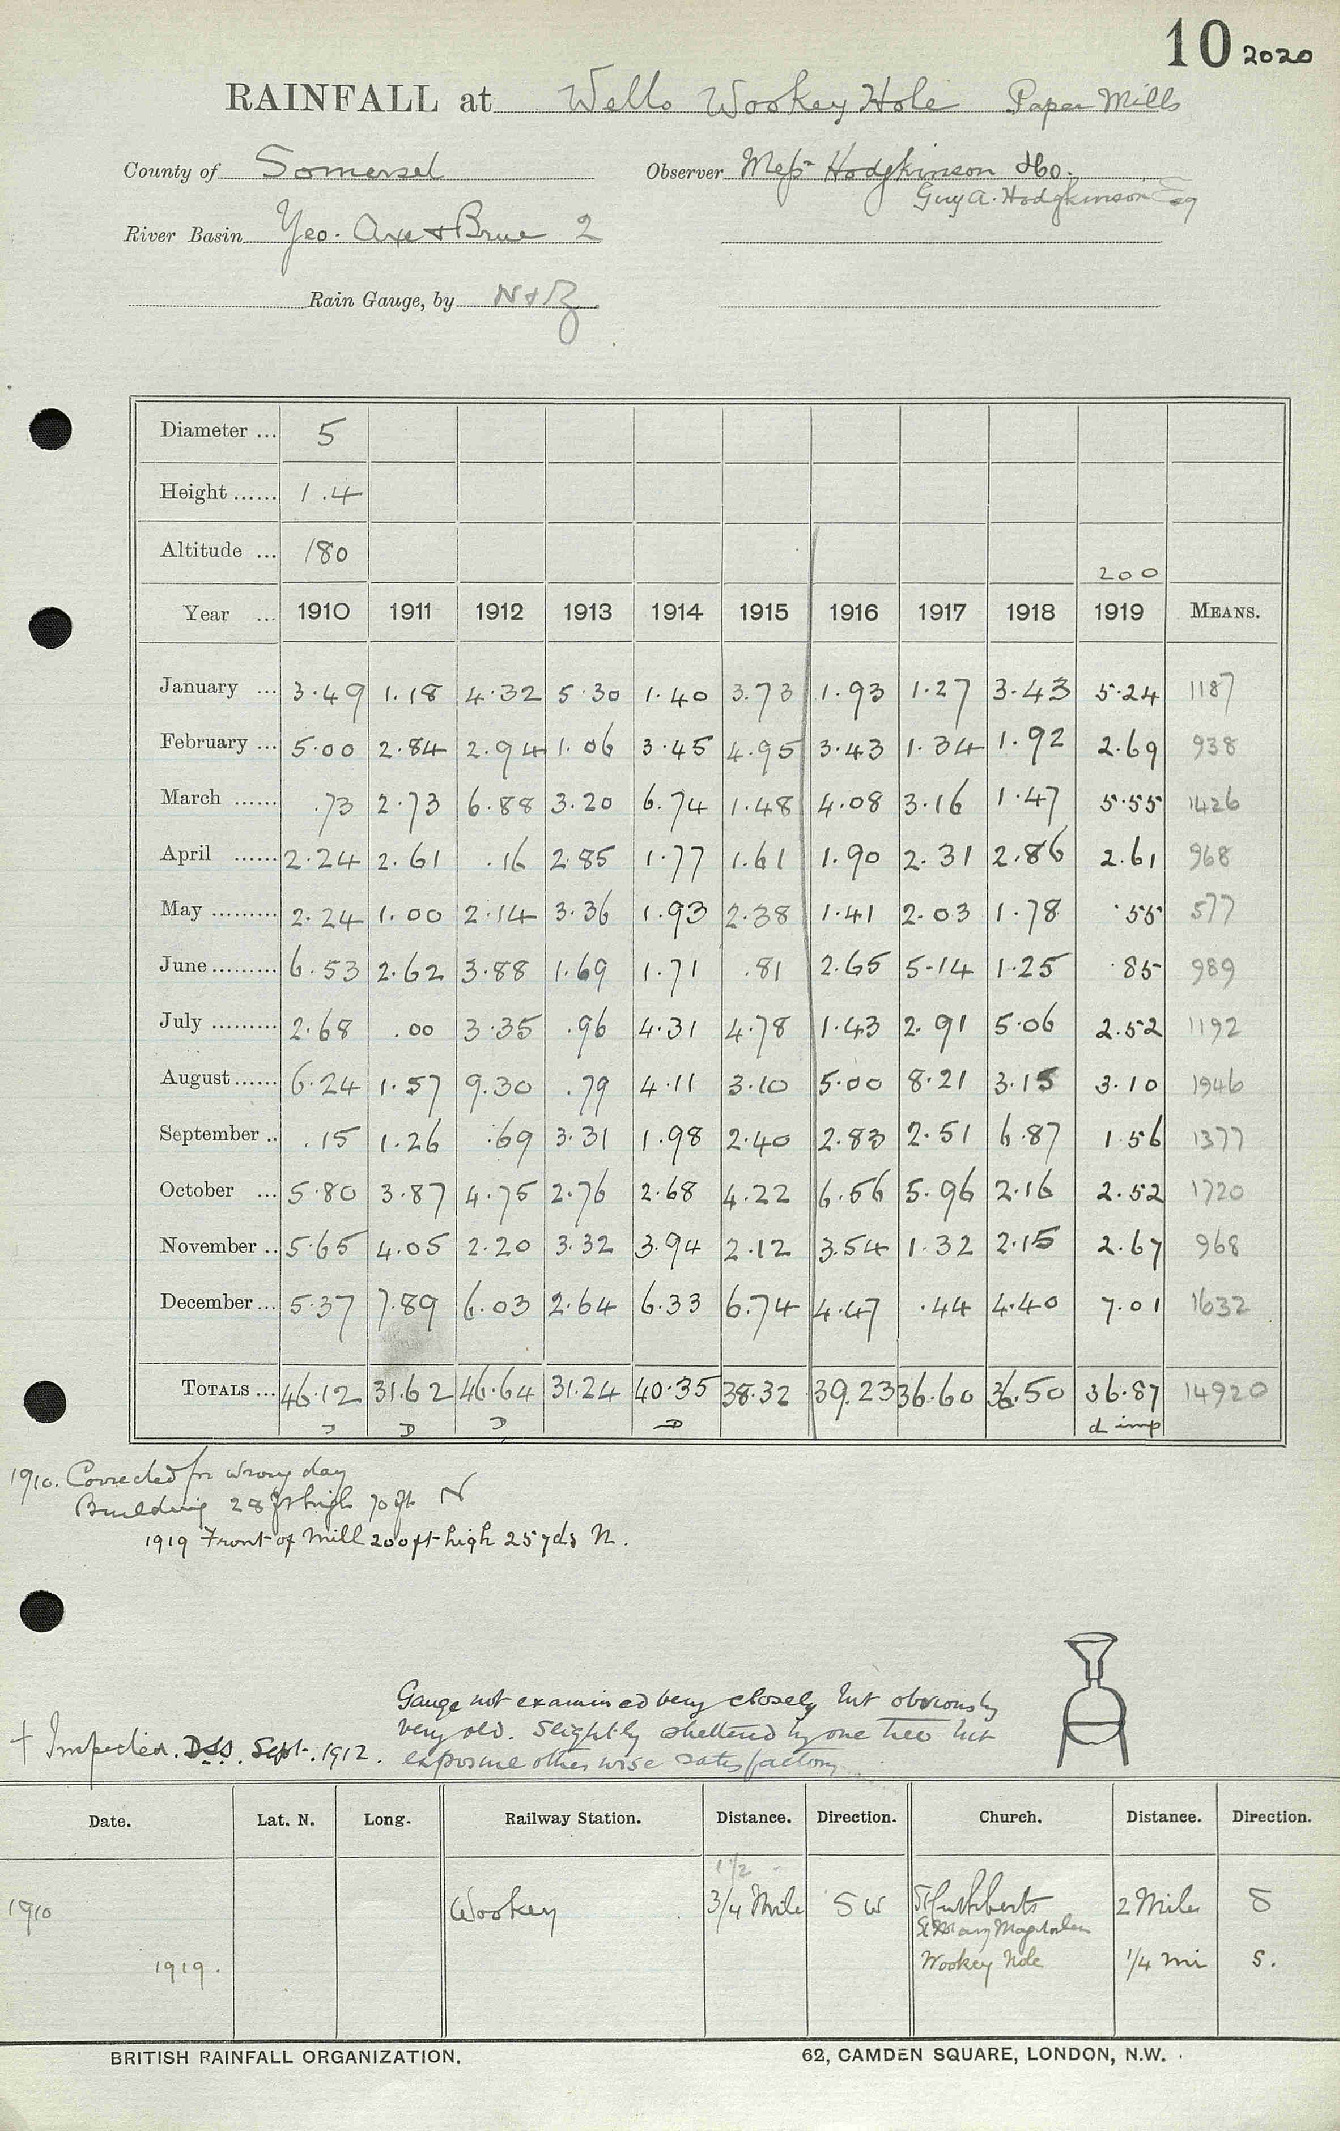 10 2020
RAINFALL at Wells Wookey Hole Paper Mills
County of Somerset Observer Messrs Hodgkinson & Co.
Guy A. Hodgkinson Esq
River Basin Yeo. Axe & Brue 2
Rain Gauge, by N & Z
Diameter ... 5
Height ...... 1.4
Altitude ... 180
200
Year ... 1910 1911 1912 1913 1914 1915 1916 1917 1918 1919 MEANS.
January ... 3.49 1.18 4.32 5.30 1.40 3.73 1.93 1.27 3.43 5.24 1187
February ... 5.00 2.84 2.94 1.06 3.45 4.95 3.43 1.34 1.92 2.69 938
March ...... .73 2.73 6.88 3.20 6.74 1.48 4.08 3.16 1.47 5.55 1426
April ...... 2.24 2.61 .16 2.85 1.77 1.61 1.90 2.31 2.86 2.61 968
May ......... 2.24 1.00 2.14 3.36 1.93 2.38 1.41 2.03 1.78 .55 577
June ......... 6.53 2.62 3.88 1.69 1.71 .81 2.65 5.14 1.25 .85 989
July ......... 2.68 .00 3.35 .96 4.31 4.78 1.43 2.91 5.06 2.52 1192
August ...... 6.24 1.57 9.30 .79 4.11 3.10 5.00 8.21 3.15 3.10 1946
September .. .15 1.26 .69 3.31 1.98 2.40 2.83 2.51 6.87 1.56 1377
October ... 5.80 3.87 4.75 2.76 2.68 4.22 6.56 5.96 2.16 2.52 1720
November .. 5.65 4.05 2.20 3.32 3.94 2.12 3.54 1.32 2.15 2.67 968
December ... 5.37 7.89 6.03 2.64 6.33 6.74 4.47 .44 4.40 7.01 1632
TOTALS ... 46.12 31.62 46.64 31.24 40.35 38.32 39.23 36.60 36.50 36.87 14920
D D D D d imp
1910. Corrected for wrong day
Building 28 ft high 70 ft N
1919 Front of Mill 200ft high 25 yds N.
Gauge not examined very closely but obviously
very old. Slightly sheltered by one tree but
exposure otherwise satisfactory
† Inspected. DSS. Sept. 1912.
Date. Lat. N. Long. Railway Station. Distance. Direction. Church. Distance. Direction.
1 1/2
1910 Wookey 3/4 Mile SW St Cuthberts 2 Miles S
St Mary Magdalen
1919. Wookey Hole 1/4 mi S.
BRITISH RAINFALL ORGANIZATION. 62, CAMDEN SQUARE, LONDON, N.W.